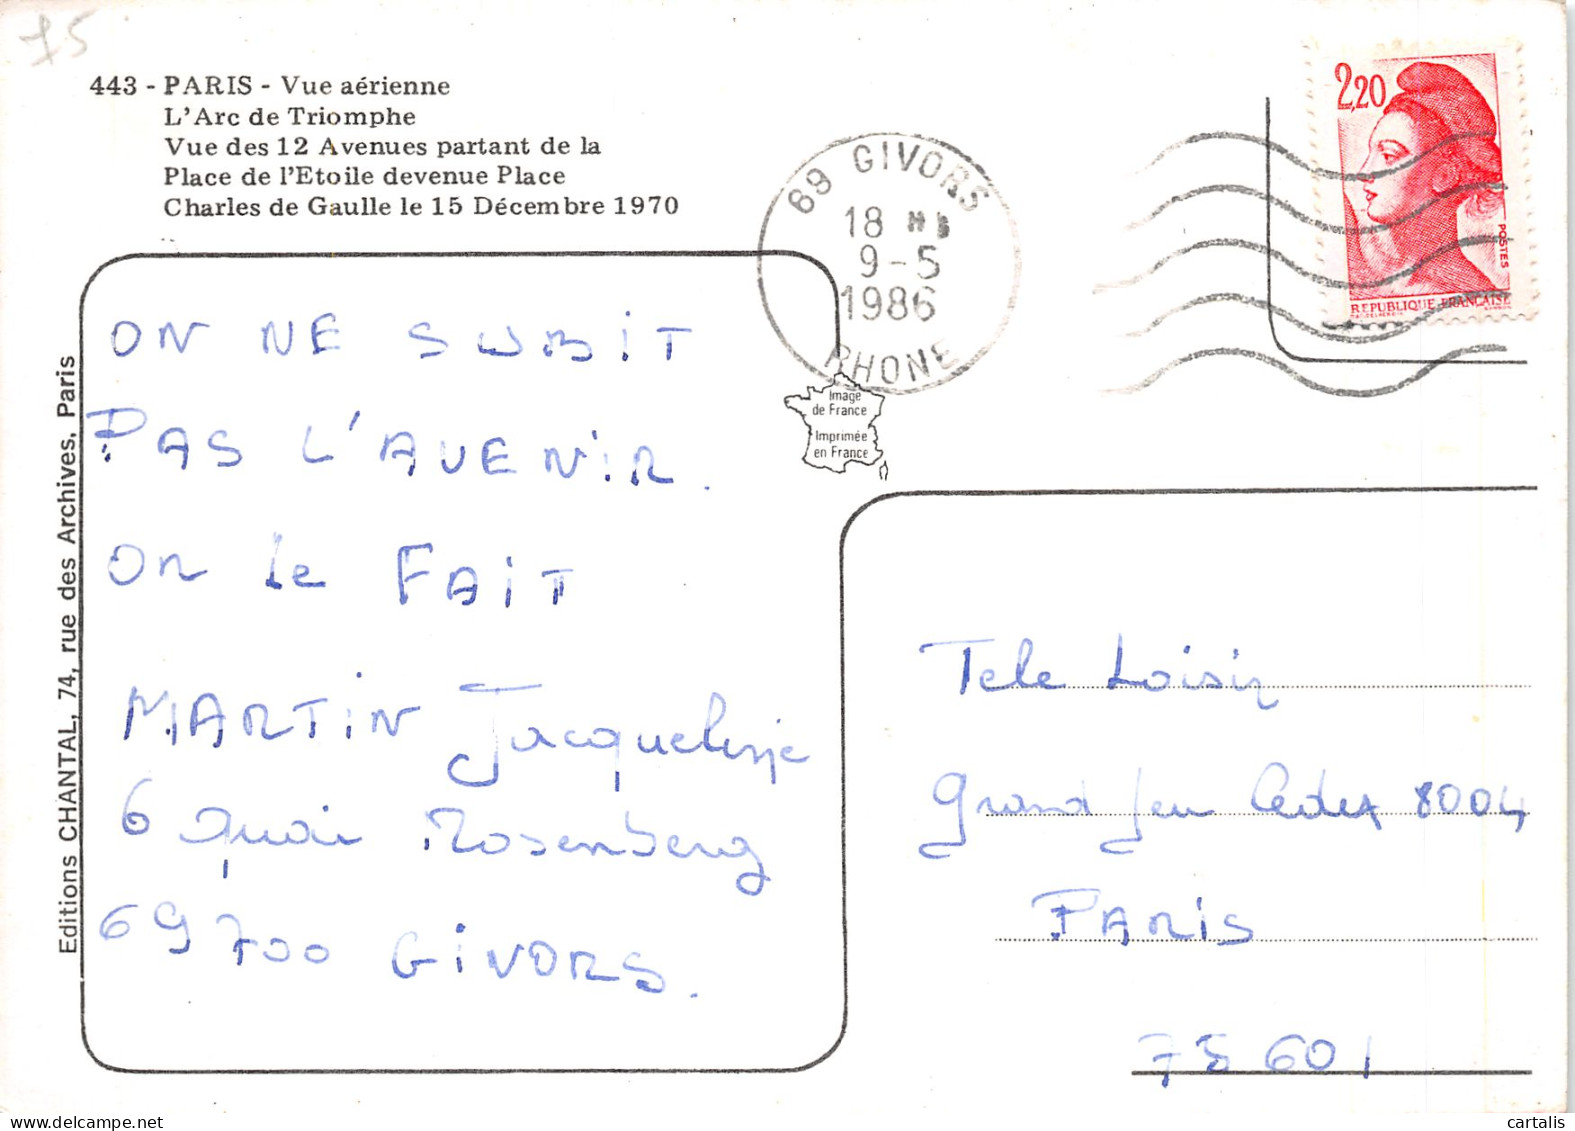 75
443 - PARIS - Vue aérienne
L'Arc de Triomphe
Vue des 12 Avenues partant de la
Place de l'Etoile devenue Place
Charles de Gaulle le 15 Décembre 1970
69 GIVORS
18 H
9-5
1986
RHONE
2,20
POSTES
REPUBLIQUE FRANÇAISE
Image
de France
Imprimée
en France
Editions CHANTAL, 74, rue des Archives, Paris
ON NE SUBiT
PAS L'AVENiR.
ON Le FAiT
MARTiN Jacqueline
6 Quai Rosenberg
69700 GiVORS.
Tele Loisir
Grand Jeu Cedex 8004
PARiS
75601
cartalis